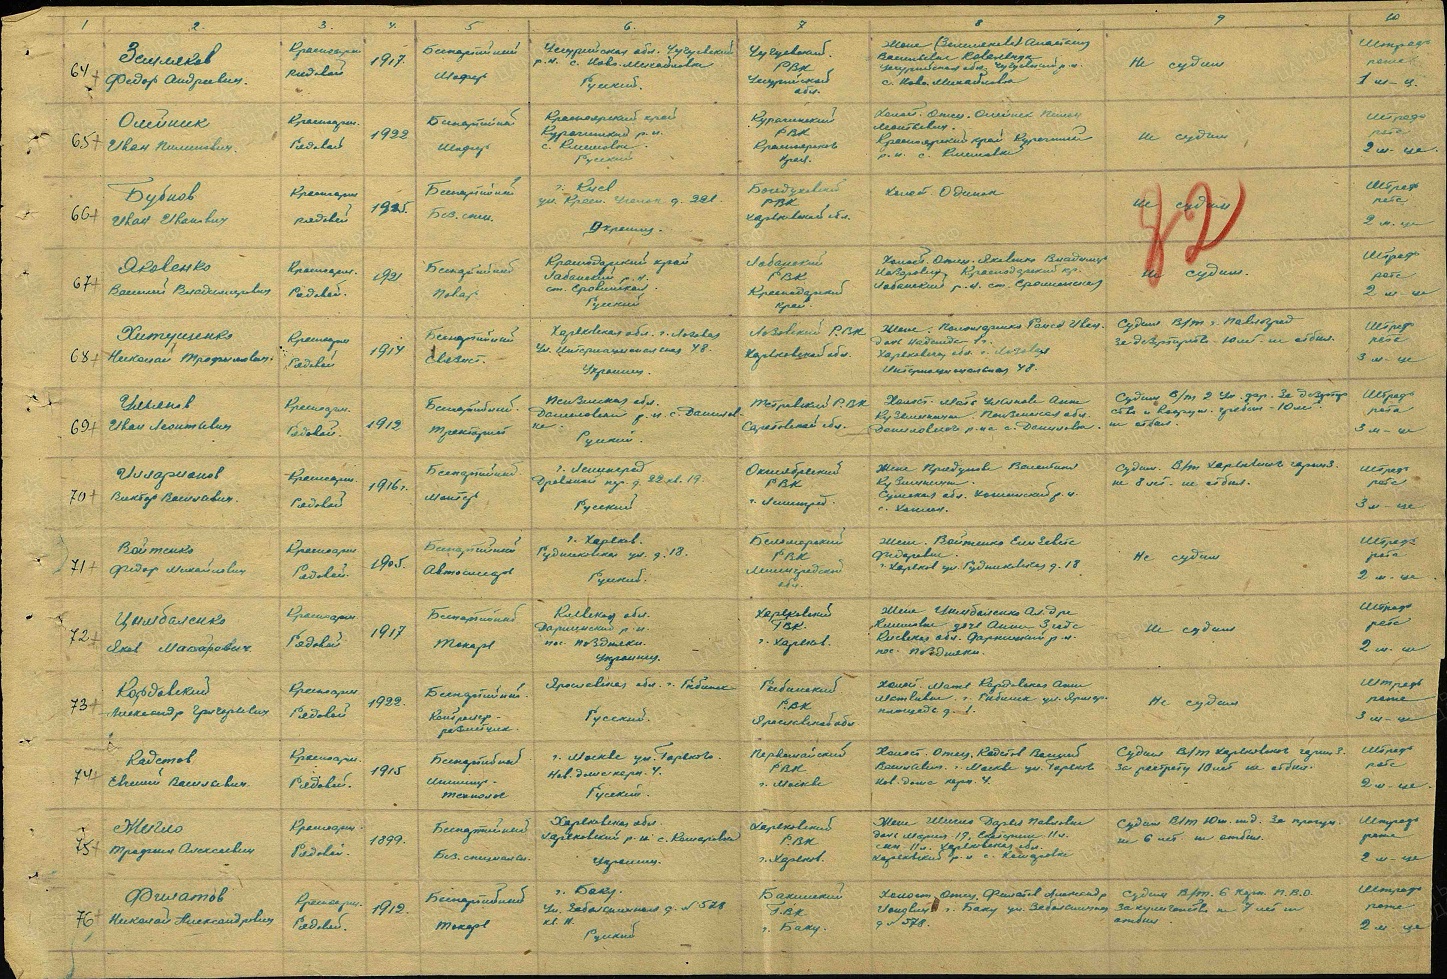 1 2. 3. 4. 5 6. 7 8 9 10
64 Земляков
Федор Андреевич.
Красноарм.
рядовой
1917.
Беспартийный
Шофер
Уссурийская обл. Чугуевский
р.н. с. Ново-Михайловка
Русский.
Чугуевский.
РВК
Уссурийской
обл.
Жена (Землякова) Анастасия
Васильевна
Уссурийская обл. Чугуевский р.н.
с. Ново-Михайловка
Не судим
Штраф
рота
1 м-ц.
65 Олейник
Иван Пименович.
Красноарм.
Рядовой
1922
Беспартийный
Шофер
Красноярский край
Курагинский р.н.
Русский
Курагинский
РВК
Красноярск.
края.
Холост. Отец. Олейник Пимен
Красноярский край Курагинский
р.н. с.
Не судим
Штраф
рота
2 м-ца.
66 Бубнов
Иван Иванович
Красноарм
рядовой
1925.
Беспартийный
Без. спец.
г. Киев
д. 221.
Украинец.
Богодуховский
РВК
Харьковской обл.
Холост. Одинок
Не судим
82
Штраф
рота
2 м-ца
67 Яковенко
Василий Владимирович
Красноарм.
Рядовой.
1921
Беспартийный
Повар
Краснодарский край
Лабинский р.н.
Русский
Лабинский
РВК
Краснодарский
край.
Холост. Отец. Яковенко Владимир
Краснодарский кр.
Лабинский р.н. ст.
Не судим.
Штраф
рота
2 м-ца
68 Хитущенко
Николай Трофимович.
Красноарм
Рядовой
1914
Беспартийный
Связист.
Харьковская обл. г. Лозовая
Ул. Интернациональная 48.
Украинец.
Лозовский РВК
Харьковской обл.
Жена. Пономаренко Раиса Иван.
Харьковская обл. г. Лозовая
Интернациональная 48.
Судим В/т г. Павлоград
за дезертирство 10 лет. не отбыл.
Штраф
рота
3 м-ца
69 Ульянов
Иван Леонтьевич
Красноарм.
Рядовой.
1912
Беспартийный.
Тракторист
Пензенская обл.
Даниловский р.н. с. Данилов-
ка.
Русский.
Петровский РВК
Саратовской обл.
Холост. Мать Ульянова Анна
Кузьминична. Пензенская обл.
Даниловского р-на с. Даниловка.
Судим В/т 2 за дезертир
ство 10 лет.
не отбыл.
Штраф
рота
3 м-ца
70 Илларионов
Виктор Васильевич.
Красноарм.
Рядовой
1916 г.
Беспартийный
Монтер
г. Ленинград
Дровяной пер. д. 22 кв. 19.
Русский
Октябрьский
РВК
г. Ленинград.
Жена Валентина
Кузьминична.
Сумская обл. Хотинский р.н.
с. Хотин.
Судим. В/т Харьковск. гарниз.
на 8 лет. не отбыл.
Штраф
рота
3 м-ца
71 Войтенко
Федор Михайлович
Красноарм
Рядовой.
1905.
Беспартийный
Автослесарь
г. Харьков.
ул. д. 18.
Русский.
Беломорский
РВК
Ленинградской
обл.
Жена. Войтенко Елизавета
Федоровна.
г. Харьков ул. д. 18
Не судим
Штраф
рота
2 м-ца
72 Цымбаленко
Яков Макарович.
Красноарм
Рядовой
1917
Беспартийный
Токарь
Киевская обл.
Дарницкий р.н.
пос. Позняки.
Украинец.
Харьковский
ГВК.
г. Харьков.
Жена Цымбаленко
дочь Анна 3 года
Киевская обл. Дарницкий р.н.
пос. Позняки.
Не судим
Штраф
рота
2 м-ца
73 Кордовский
Александр Григорьевич
Красноарм
Рядовой
1922.
Беспартийный.
Контролер-
разметчик.
Ярославская обл. г. Рыбинск
Русский.
Рыбинский
РВК
Ярославской обл.
Холост. Мать Кордовская Анна
Матвеевна. г. Рыбинск
площадь д. 1.
Не судим
Штраф
рота
3 м-ца
74 Кадетов
Евгений Васильевич
Красноарм.
Рядовой.
1915
Беспартийный
Инженер-
технолог
г. Москва ул. Горького.
Нов. дома корп. 4.
Русский.
Первомайский
РВК
г. Москва
Холост. Отец Кадетов Василий
Васильевич. г. Москва ул. Горького
нов. дома корп. 4
Судим В/т Харьковск. гарниз.
за растрату 10 лет не отбыл.
Штраф
рота
2 м-ца.
75 Жигло
Трофим Алексеевич
Красноарм.
Рядовой.
1899.
Беспартийный
Без. специальн.
Харьковская обл.
Харьковский р.н. с. Комаровка
Украинец.
Харьковский
РВК
г. Харьков.
Жена Жигло Дарья Павловна
дочь Мария 17, Екатерина 11 л.
Харьковская обл.
Харьковский р.н. с. Комаровка
Судим В/т Юж. ж.д. за прогул.
на 6 лет. не отбыл.
Штраф
рота
2 м-ца
76 Филатов
Николай Александрович
Красноарм.
Рядовой.
1912.
Беспартийный
Токарь
г. Баку.
Ул. д. № 578
Русский
Бакинский
ГВК
г. Баку.
Холост. Отец Филатов Александр
г. Баку ул.
д. № 578.
Судим В/т. 6
на 7 лет не
отбыл
Штраф
рота
2 м-ца